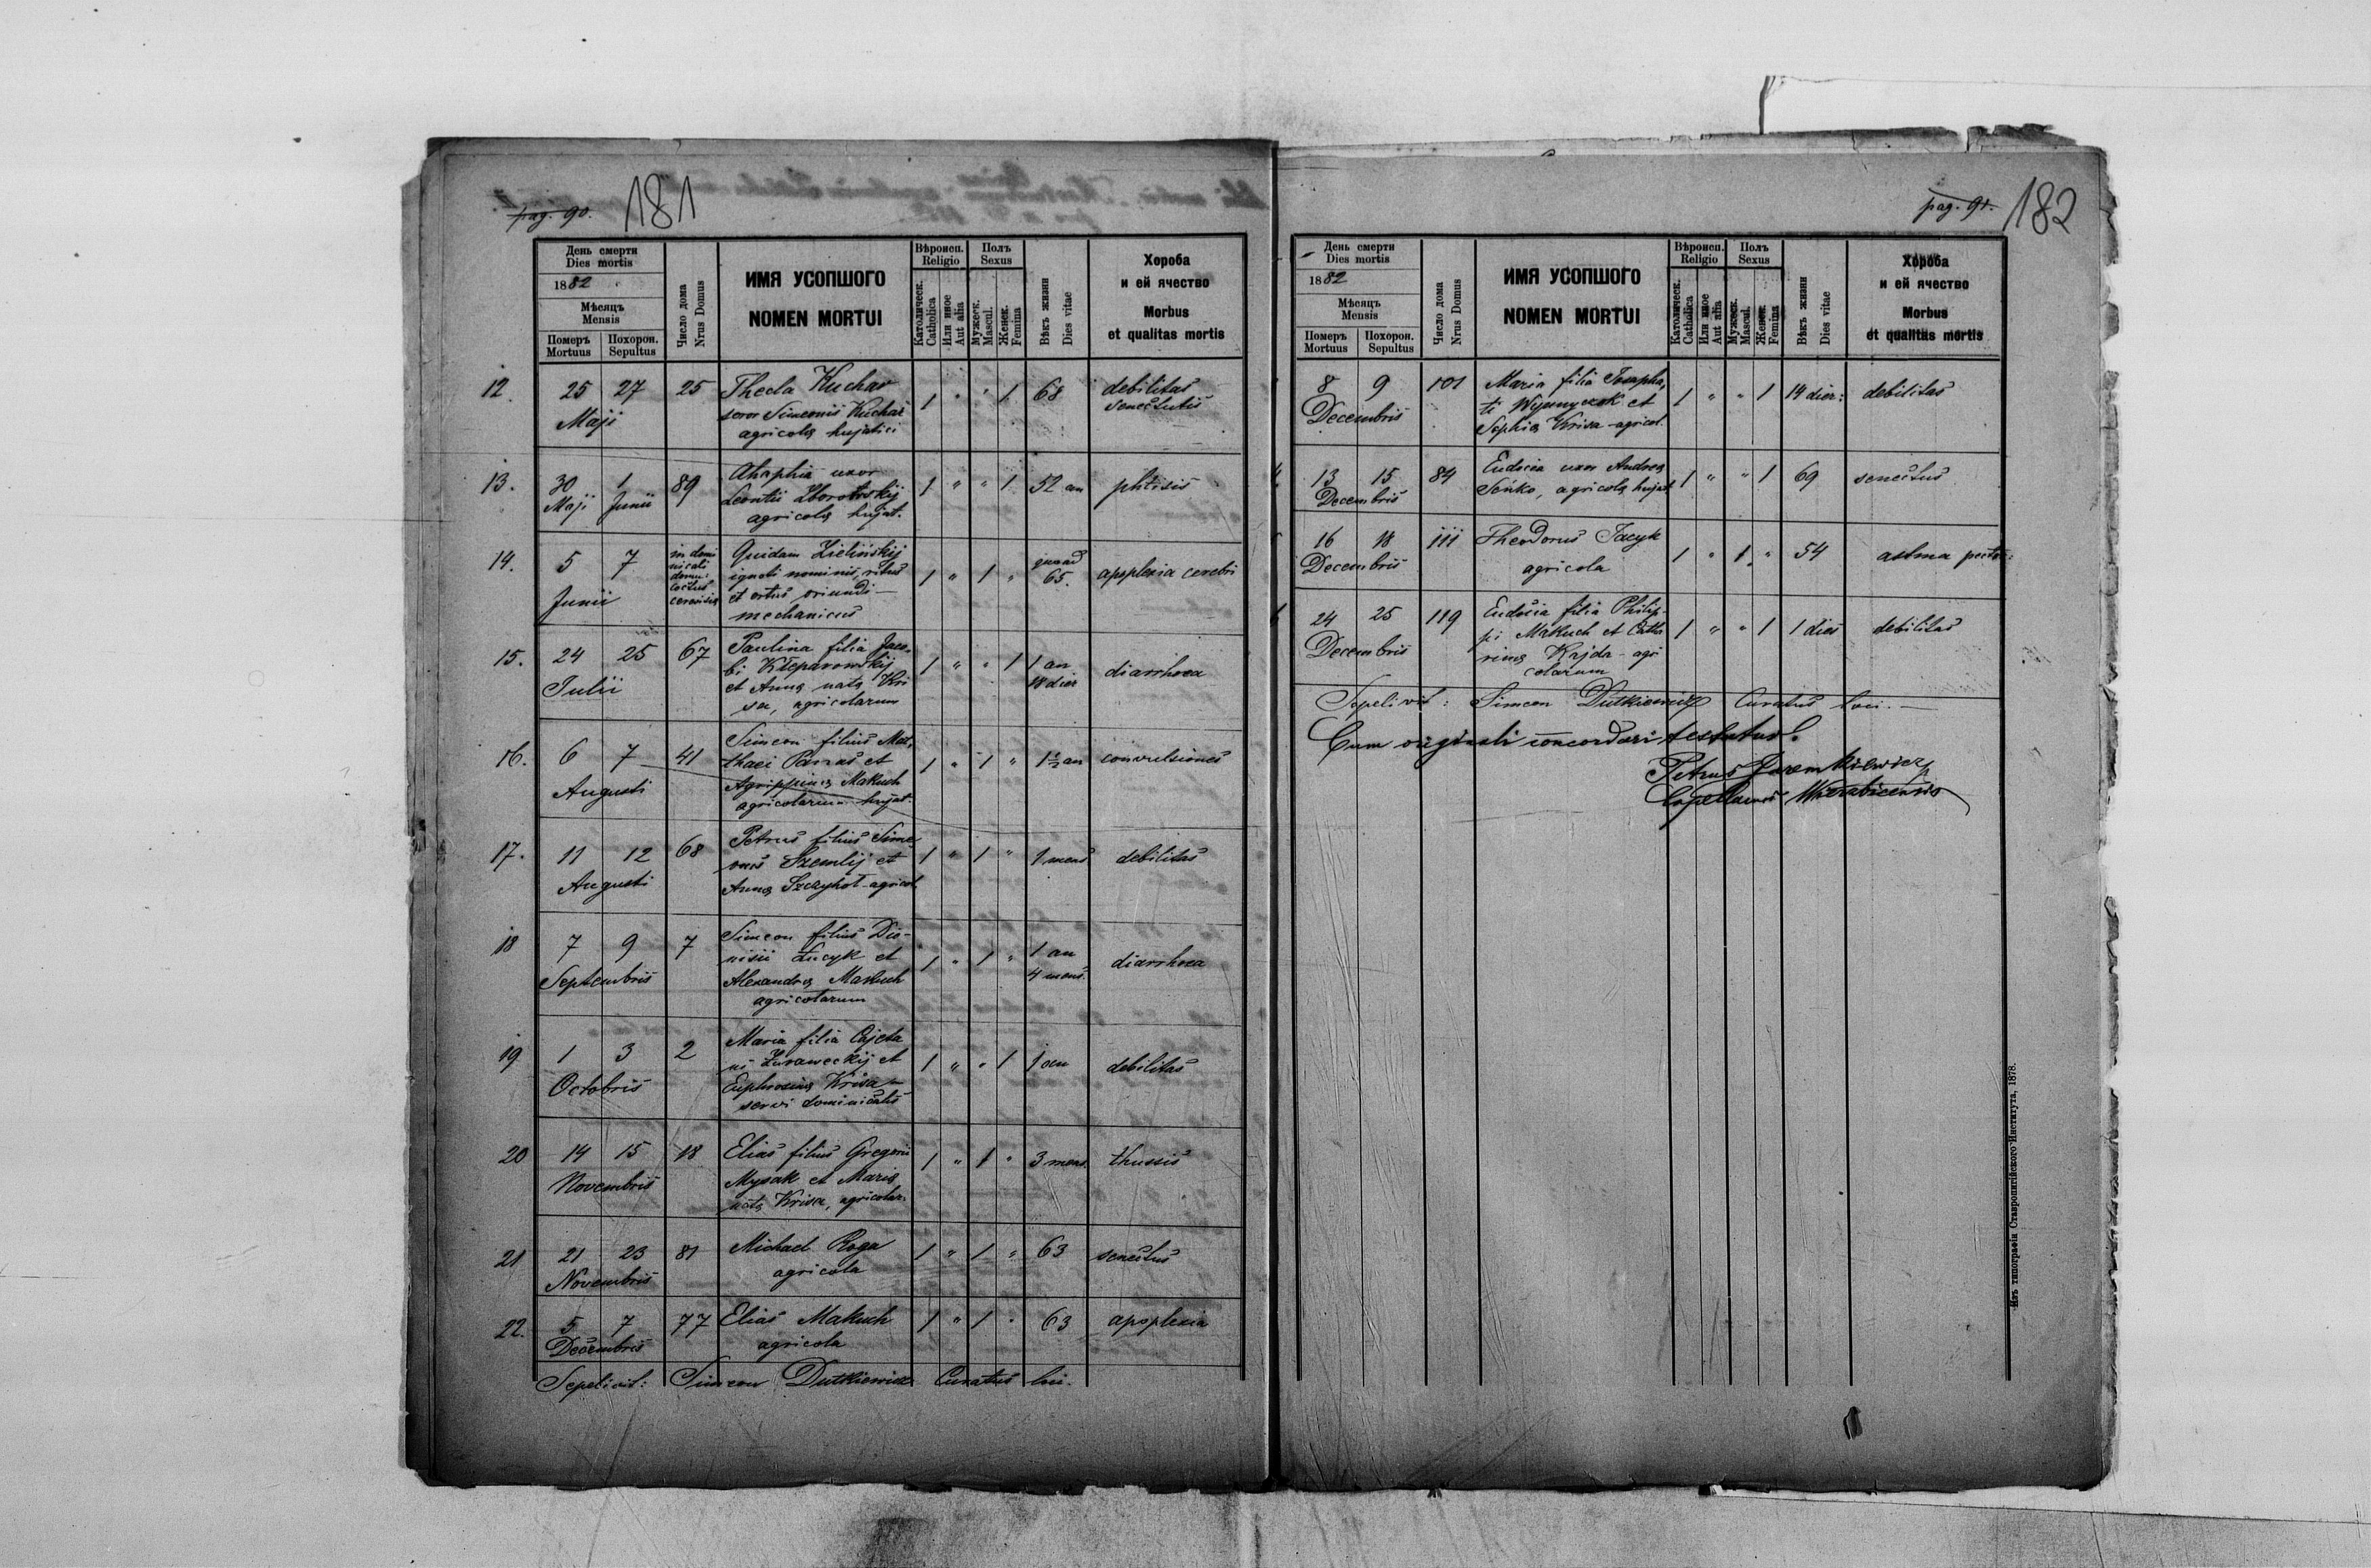 pag. 90. 181
День смерти
Dies mortis
1882
Мѣсяцъ
Mensis
Померъ
Mortuus
Похорон.
Sepultus
Число дома
Nrus Domus
ИМЯ УСОПШОГО
NOMEN MORTUI
Вѣроисп.
Religio
Католическ.
Catholica
Или иное
Aut alia
Полъ
Sexus
Мужеск.
Mascul.
Женск.
Femina
Вѣкъ жизни
Dies vitae
Хороба
и ей ячество
Morbus
et qualitas mortis
12. 25 27 25 Thecla Kuchar 1 " " 1 68 debilitas
Maji soror Simeonis Kuchar senectutis
agricolę hujatici
13. 30 1 89 Ahaphia uxor 1 " " 1 52 an phtisis
Maji Junii Leontii Zborowskij
agricolę hujat.
14. 5 7 in domi Quidam Zieliński 1 " 1 " quoad apoplexia cerebri
nicali ignoti nominis, ritus 65.
Junii et ortus oriundi
cerevisię mechanicus
15. 24 25 67 Paulina filia Jaco- 1 " " 1 1 an diarrhoea
Julii bi Kłeparowskij 18 dier
et Annę natę Kri
sa, agricolarum
16. 6 7 41 Simeon filius Mat- 1 " 1 " 1½ an convulsiones
thaei Parras et
Augusti Agrippinę Makuch
agricolarum hujat.
17. 11 12 68 Petrus filius Sime 1 " 1 " 1 mens debilitas
onis Szemlij et
Augusti Annę agricol.
18 7 9 7 Simeon filius Dio- 1 " 1 " 1 an diarrhoea
nisii Łucyk et 4 mens.
Septembris Alexandrę Makuch
agricolarum
19 1 3 2 Maria filia Cajeta 1 " " 1 1 an debilitas
ni Żuraweckij et
Octobris Euphrosinę Krisa
servi dominicalis
20 14 15 18 Elias filius Gregorii 1 " 1 " 3 mens. thussis
Novembris Mysak et Marię
natę Krisa, agricolar.
21 21 23 81 Michael Roga 1 " 1 " 63 senectus
Novembris agricola
22. 5 7 77 Elias Makuch 1 " 1 " 63 apoplexia
Decembris agricola
Sepelivit: Simeon Dutkiewicz Curatus loci.
pag. 91. 182
День смерти
Dies mortis
1882
Мѣсяцъ
Mensis
Померъ
Mortuus
Похорон.
Sepultus
Число дома
Nrus Domus
ИМЯ УСОПШОГО
NOMEN MORTUI
Вѣроисп.
Religio
Католическ.
Catholica
Или иное
Aut alia
Полъ
Sexus
Мужеск.
Mascul.
Женск.
Femina
Вѣкъ жизни
Dies vitae
Хороба
и ей ячество
Morbus
et qualitas mortis
8 9 101 Maria filia Josapha, 1 " " 1 14 dier: debilitas
Decembris ti et
Sophię Krisa agricol.
13 15 84 Eudocia uxor Andreę 1 " " 1 69 senectus
Decembris Seńko, agricolę hujat.
16 18 111 Theodorus Jacyk 1 " 1 " 54 astma
Decembris agricola
24 25 119 Eudocia filia Philip- 1 " " 1 1 dies debilitas
Decembris pi Makuch et Catha
rinę Kajda agri
colarum
Sepelivit: Simeon Dutkiewicz Curatus loci.
Cum originali concordari testatur.
Petrus
Capellanus
Изъ типографіи Ставропигійского Института, 1878.